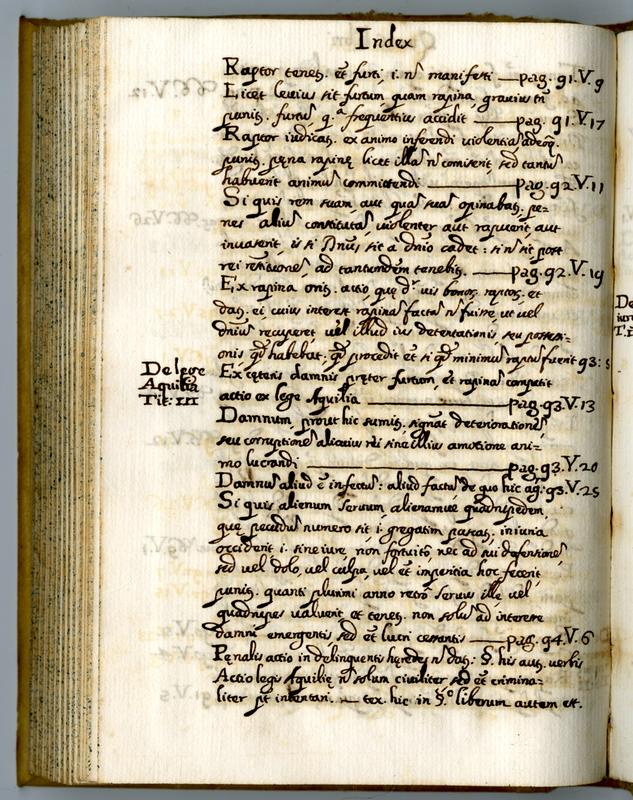 Index
Raptor tenet. et furti i. nō manifesti — pag. 91. V. 9
Licet levius sit furtum quam rapina gravius tñ
punit. furtū q.ª frequentius accidit — pag. 91. V. 17
Raptor iudicat. ex animo inferendi violentia
punit. pęna rapinę licet illā ñ comiserit sed tantū
habuerit animū committendi — pag. 92. V. 11
Si quis rem suam aut quā suā opinabat. pe=
nes aliū constitutā violenter aut rapuerit aut
invaserit, is si Dñus sit a dñio cadet: si ñ sit post
rei restitutionē ad tantundem tenebit. — pag. 92. V. 19
Ex rapina orit. actio quę dr̄ vis bonor. raptor. et
dat. ei cuius interest rapinā factā ñ fuisse ut vel
dñius recuperet vel illud ius detentationis seu possessi=
onis qd̄ habebat: qd̄ procedit et si qd̄ minimū raptū fuerit 93: 5
De lege
Aquilia
Tit: III
Ex cęteris damnis pręter furtum, et rapinā competit
actio ex lege Aquilia — pag. 93. V. 13
Damnum prout hic sumit. signat deterioratione
seu corruptionē alicuius rei sine illius amotione ani=
mo lucrandi — pag. 93. V. 20
Damnū aliud ē infectū: aliud factū de quo hic ag. 93. V. 25
Si quis alienum servum, alienamve quadrupedem,
quę pecudū numero sit i. gregatim pascat. iniuria
occiderit i. sine iure, non fortuito, nec ad sui defensionē
sed vel dolo, vel culpa, vel et imperitia hoc fecerit
punit. quanti plurimi anno retro servus ille vel
quadrupes valuerit, et tenet. non solū ad interesse
damni emergentis sed et lucri cessantis — pag. 94. V. 6
Pęnalis actio in delinquentis hęredes ñ dat: §. his aut. verbis
Actio legis Aquilię ñ solum civiliter sed et crimina=
liter pōt intentari. — tex. hic in §.º liberum autem est.